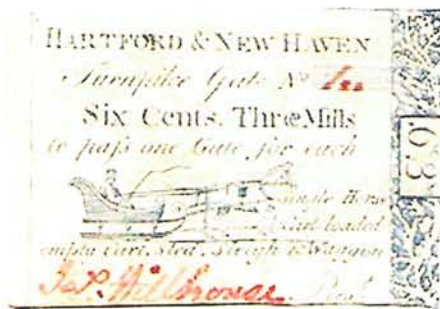 HARTFORD & NEW HAVEN
Turnpike Gate No
Six Cents. Three Mills
to pass one Gate, for each
Single Horse
Cart loaded
empty Cart, Sled, Sleigh or Waggon
Jas. Hillhouse Prest.
63